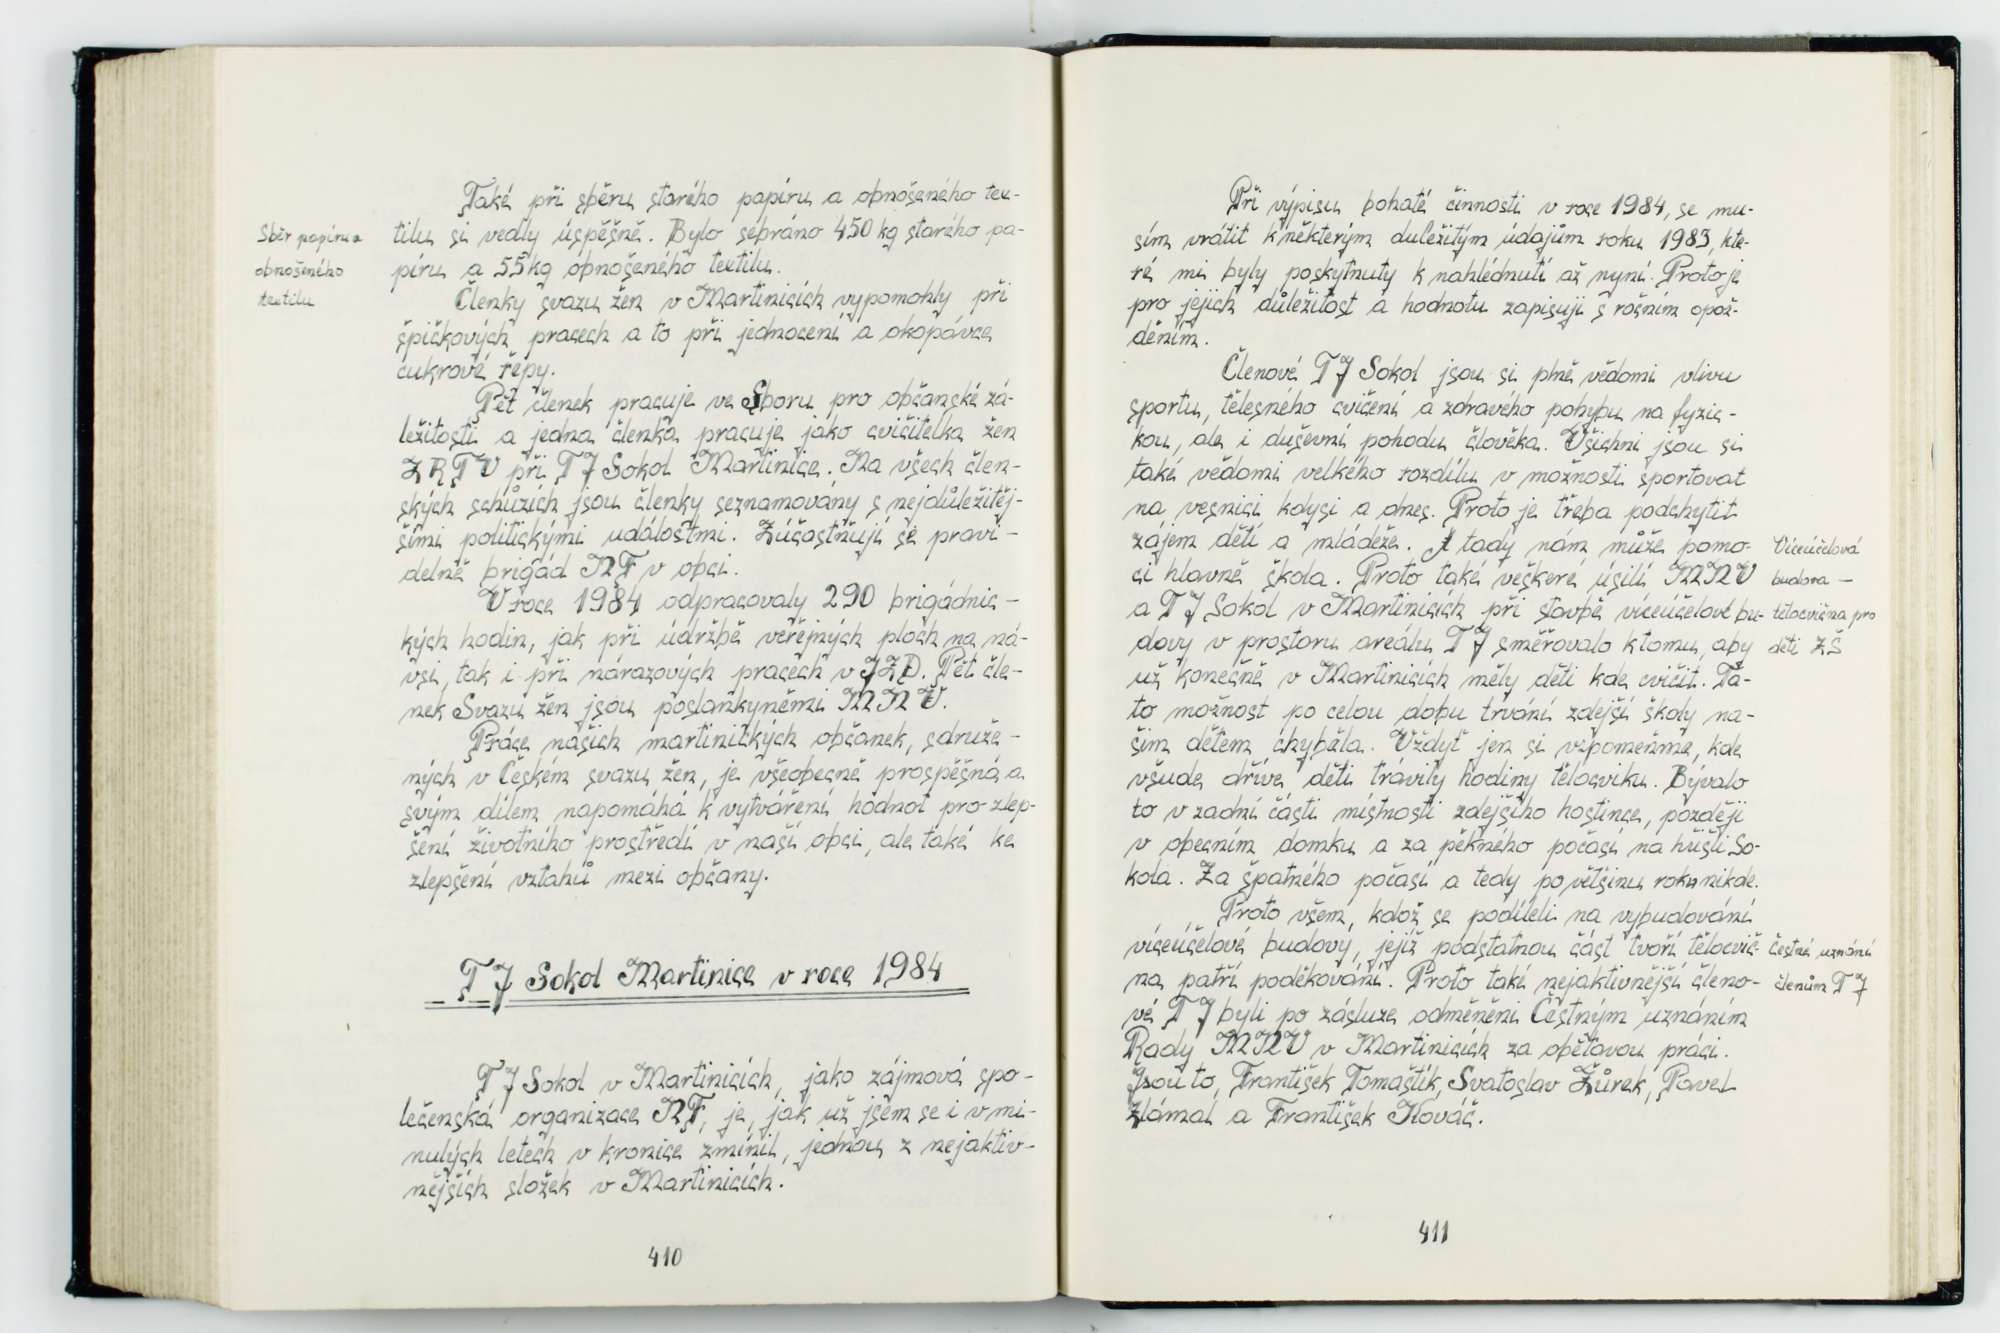 Sběr papíru a
obnošeného
textilu
Také při sběru starého papíru a obnošeného tex-
tilu si vedly úspěšně. Bylo sebráno 450 kg starého pa-
píru a 55 kg obnošeného textilu.
Členky svazu žen v Martinicích vypomohly při
špičkových pracech a to při jednocení a okopávce
cukrové řepy.
Pět členek pracuje ve Sboru pro občanské zá-
ležitosti a jedna členka pracuje jako cvičitelka žen
ZRTV při TJ Sokol Martinice. Na všech člen-
ských schůzích jsou členky seznamovány s nejdůležitěj-
šími politickými událostmi. Zúčastňují se pravi-
delně brigád NF v obci.
V roce 1984 odpracovaly 290 brigádnic-
kých hodin, jak při údržbě veřejných ploch na ná-
vsi, tak i při nárazových pracech v JZD. Pět čle-
nek Svazu žen jsou poslankyněmi MNV.
Práce našich martinických občanek, sdruže-
ných v Českém svazu žen, je všeobecně prospěšná a
svým dílem napomáhá k vytváření hodnot pro zlep-
šení životního prostředí v naší obci, ale také ke
zlepšení vztahů mezi občany.
TJ Sokol Martinice v roce 1984
TJ Sokol v Martinicích, jako zájmová spo-
lečenská organizace NF, je, jak už jsem se i v mi-
nulých letech v kronice zmínil, jednou z nejaktiv-
nějších složek v Martinicích.
410
Při výpisu bohaté činnosti v roce 1984, se mu-
sím vrátit k některým důležitým údajům roku 1983, kte-
ré mi byly poskytnuty k nahlédnutí až nyní. Proto je
pro jejich důležitost a hodnotu zapisuji s ročním opož-
děním.
Členové TJ Sokol jsou si plně vědomi vlivu
sportu, tělesného cvičení a zdravého pohybu na fyzic-
kou, ale i duševní pohodu člověka. Všichni jsou si
také vědomi velkého rozdílu v možnosti sportovat
na vesnici kdysi a dnes. Proto je třeba podchytit
zájem dětí a mládeže. A tady nám může pomo-
ci hlavně škola. Proto také veškeré úsilí MNV
a TJ Sokol v Martinicích při stavbě víceúčelové bu-
dovy v prostoru areálu TJ směřovalo k tomu, aby
už konečně v Martinicích měly děti kde cvičit. Ta-
to možnost po celou dobu trvání zdejší školy na-
šim dětem chyběla. Vždyť jen si vzpomeňme, kde
všude dříve děti trávily hodiny tělocviku. Bývalo
to v zadní části místnosti zdejšího hostince, později
v obecním domku a za pěkného počasí na hřišti So-
kola. Za špatného počasí a tedy po většinu roku nikde.
Proto všem, kdož se podíleli na vybudování
víceúčelové budovy, jejíž podstatnou část tvoří tělocvič-
na patří poděkování. Proto také nejaktivnější členo-
vé TJ byli po zásluze odměněni Čestným uznáním
Rady MNV v Martinicích za obětavou práci.
Jsou to, František Tomaštík, Svatoslav Žůrek, Pavel
Zlámal a František Kováč.
Víceúčelová
budova –
tělocvična pro
děti ZŠ
čestné uznání
členům TJ
411